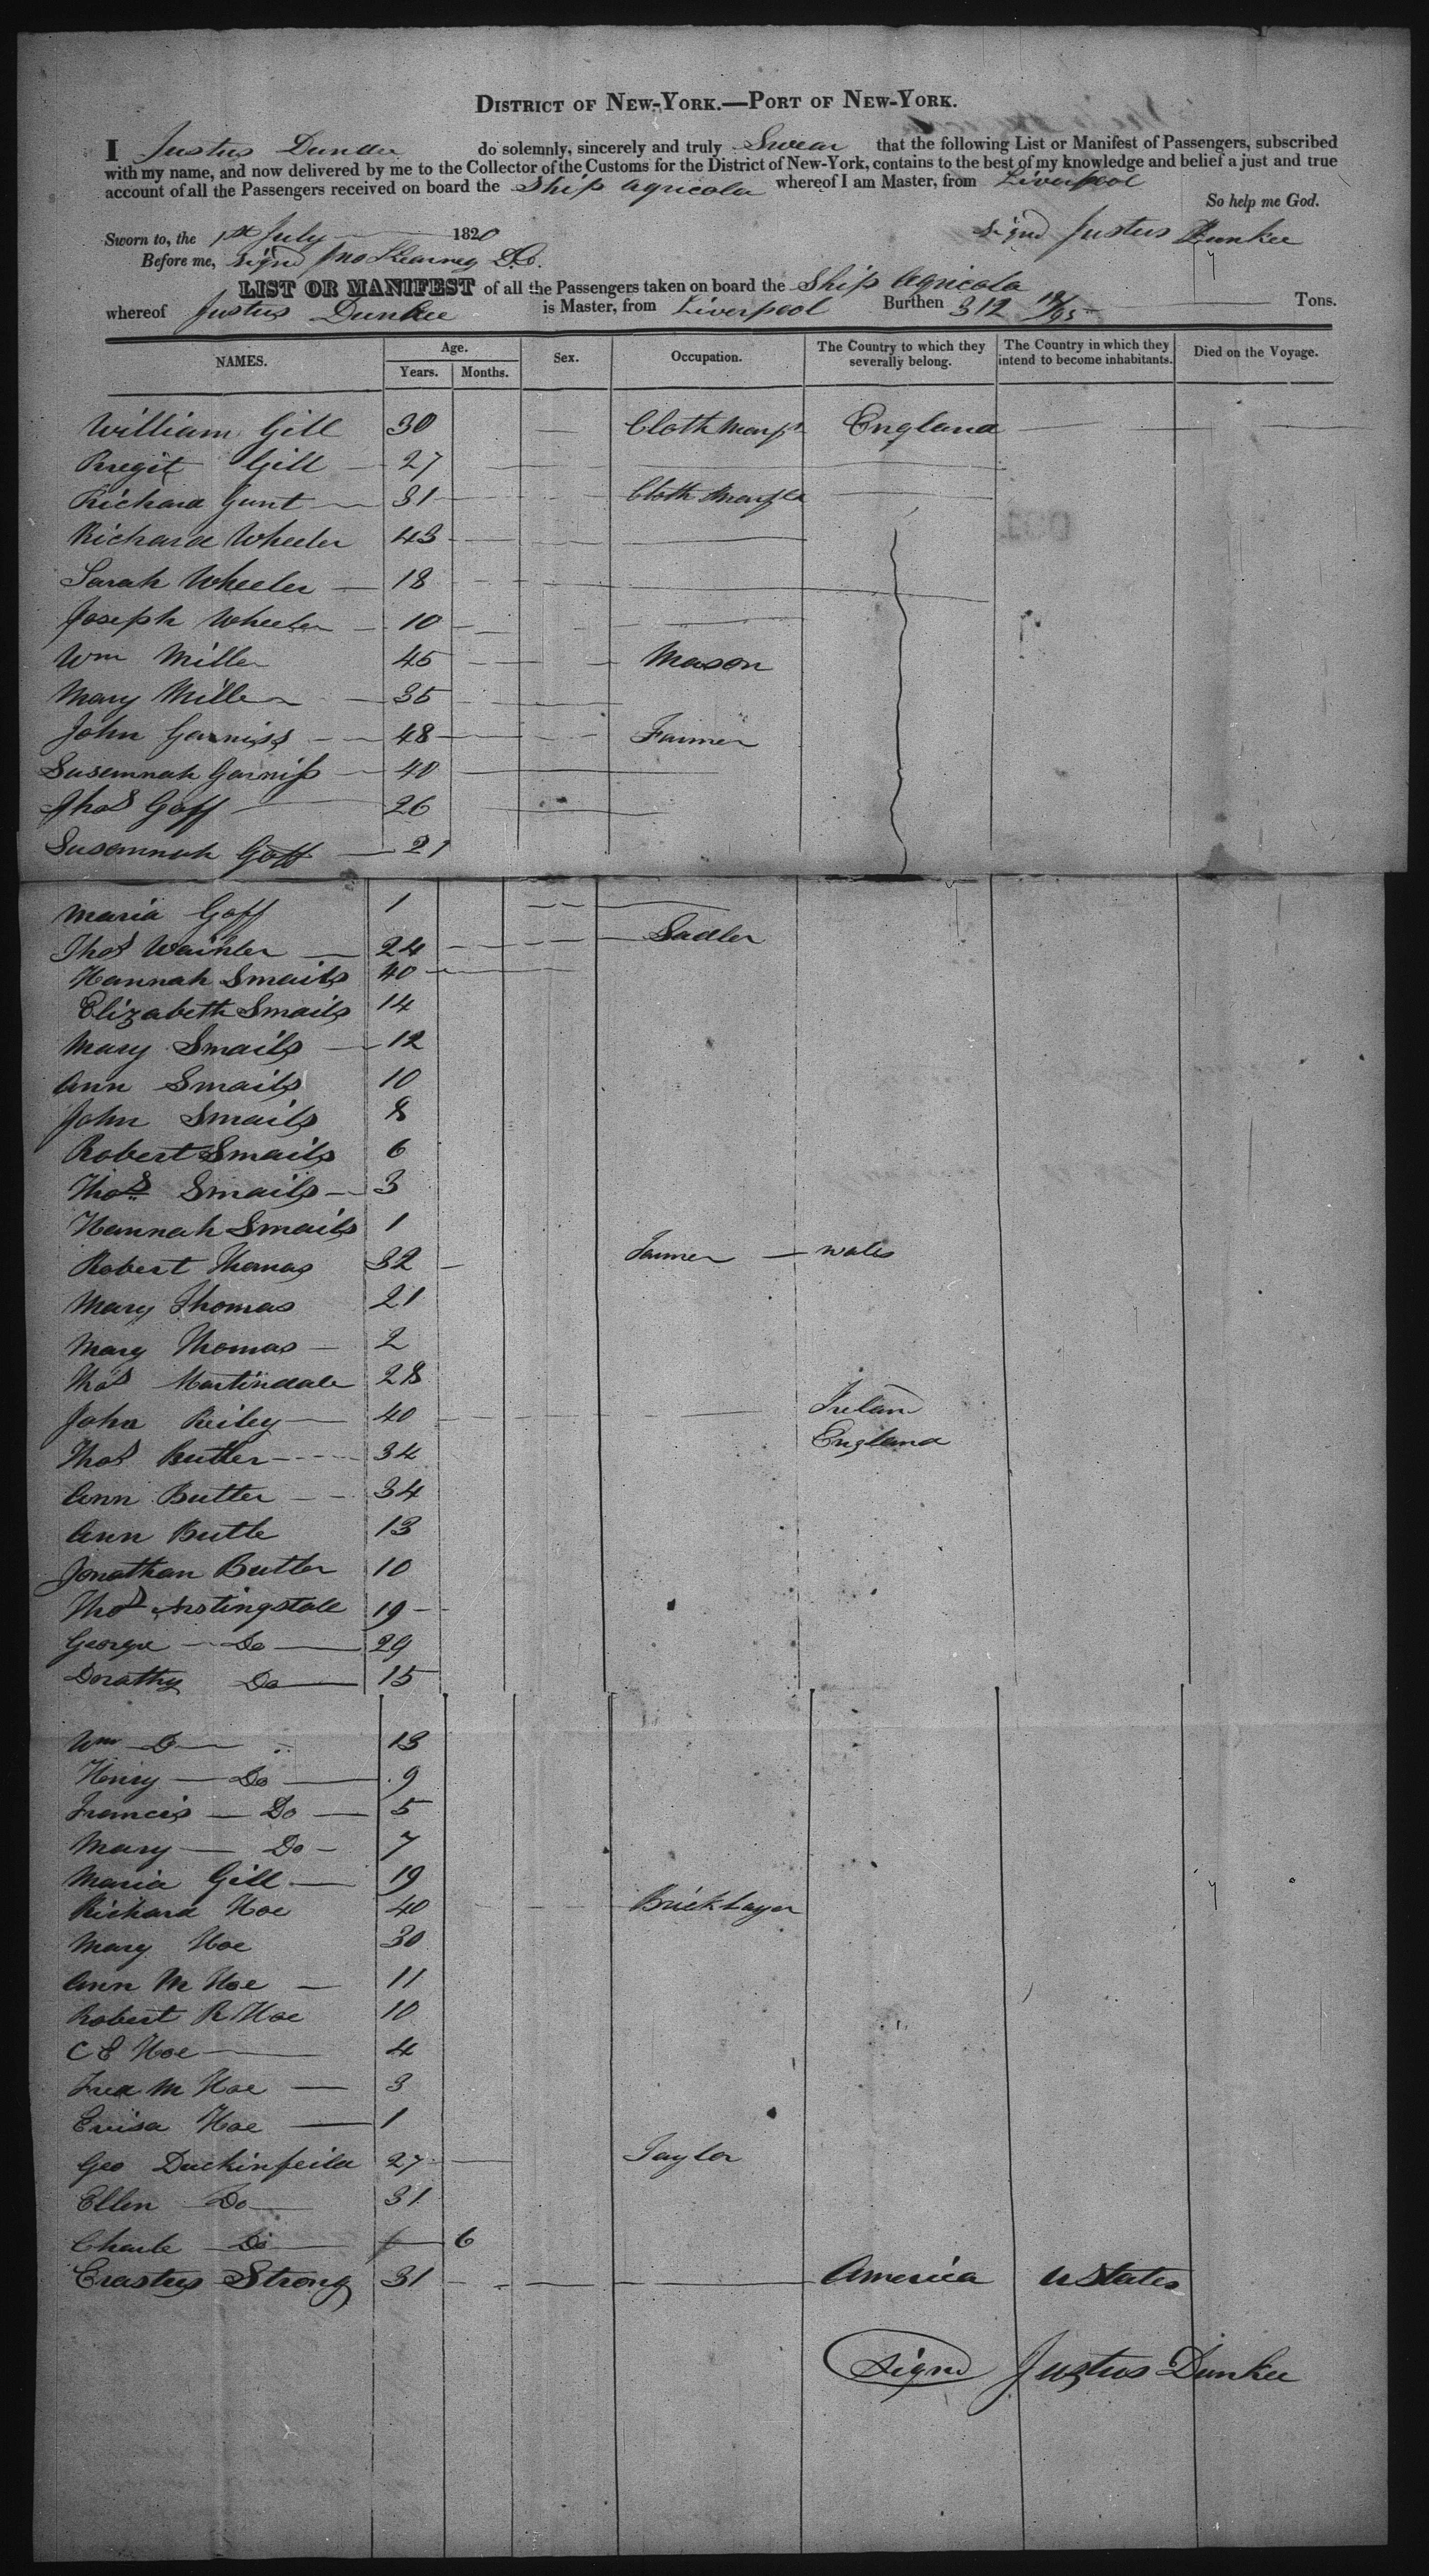 DISTRICT OF NEW-YORK.—PORT OF NEW-YORK.
I Justus Dunkee do solemnly, sincerely and truly Swear that the following List or Manifest of Passengers, subscribed
with my name, and now delivered by me to the Collector of the Customs for the District of New-York, contains to the best of my knowledge and belief a just and true
account of all the Passengers received on board the Ship Agricola whereof I am Master, from Liverpool
So help me God.
Sworn to, the 1st July 1820 signd Justus Dunkee
Before me, signd Jno Kearney D.C.
LIST OR MANIFEST of all the Passengers taken on board the Ship Agricola
whereof Justus Dunkee is Master, from Liverpool Burthen 312 19/95 Tons.
NAMES. Age. Years. Months. Sex. Occupation. The Country to which they severally belong. The Country in which they intend to become inhabitants. Died on the Voyage.
William Gill 30 Cloth England
Gill 27
Richard Gunt 31 Cloth
Richard Wheeler 43
Sarah Wheeler 18
Joseph Wheeler 10
Wm Miller 45 Mason
Mary Miller 35
John Garniss 48 Farmer
Susannah Garniss 40
Thos Goff 26
Susannah Goff 21
Maria Goff 1
Thos 24 Sadler
Hannah Smails 40
Elizabeth Smails 14
Mary Smails 12
Ann Smails 10
John Smails 8
Robert Smails 6
Thos Smails 3
Hannah Smails 1
Robert Thomas 32 Farmer Wales
Mary Thomas 21
Mary Thomas 2
Thos Martindale 28
John Reiley 40 Irelan
Thos Butler 34 England
Ann Butler 34
Ann Butle 13
Jonathan Butler 10
Thos Astingstall 19
George Do 29
Dorathy Do 15
Wm D 13
Henry Do 9
Francis Do 5
Mary Do 7
Maria Gill 19
Richard Hoe 40 Brick Layer
Mary Hoe 30
Ann M Hoe 11
Robert R Hoe 10
C E Hoe 4
Fred M Hoe 3
Hoe 1
Geo Duckinfeild 27 Taylor
Ellen Do 31
Charle Do 6
Erastus Strong 31 America U States
Signd Justus Dunkee